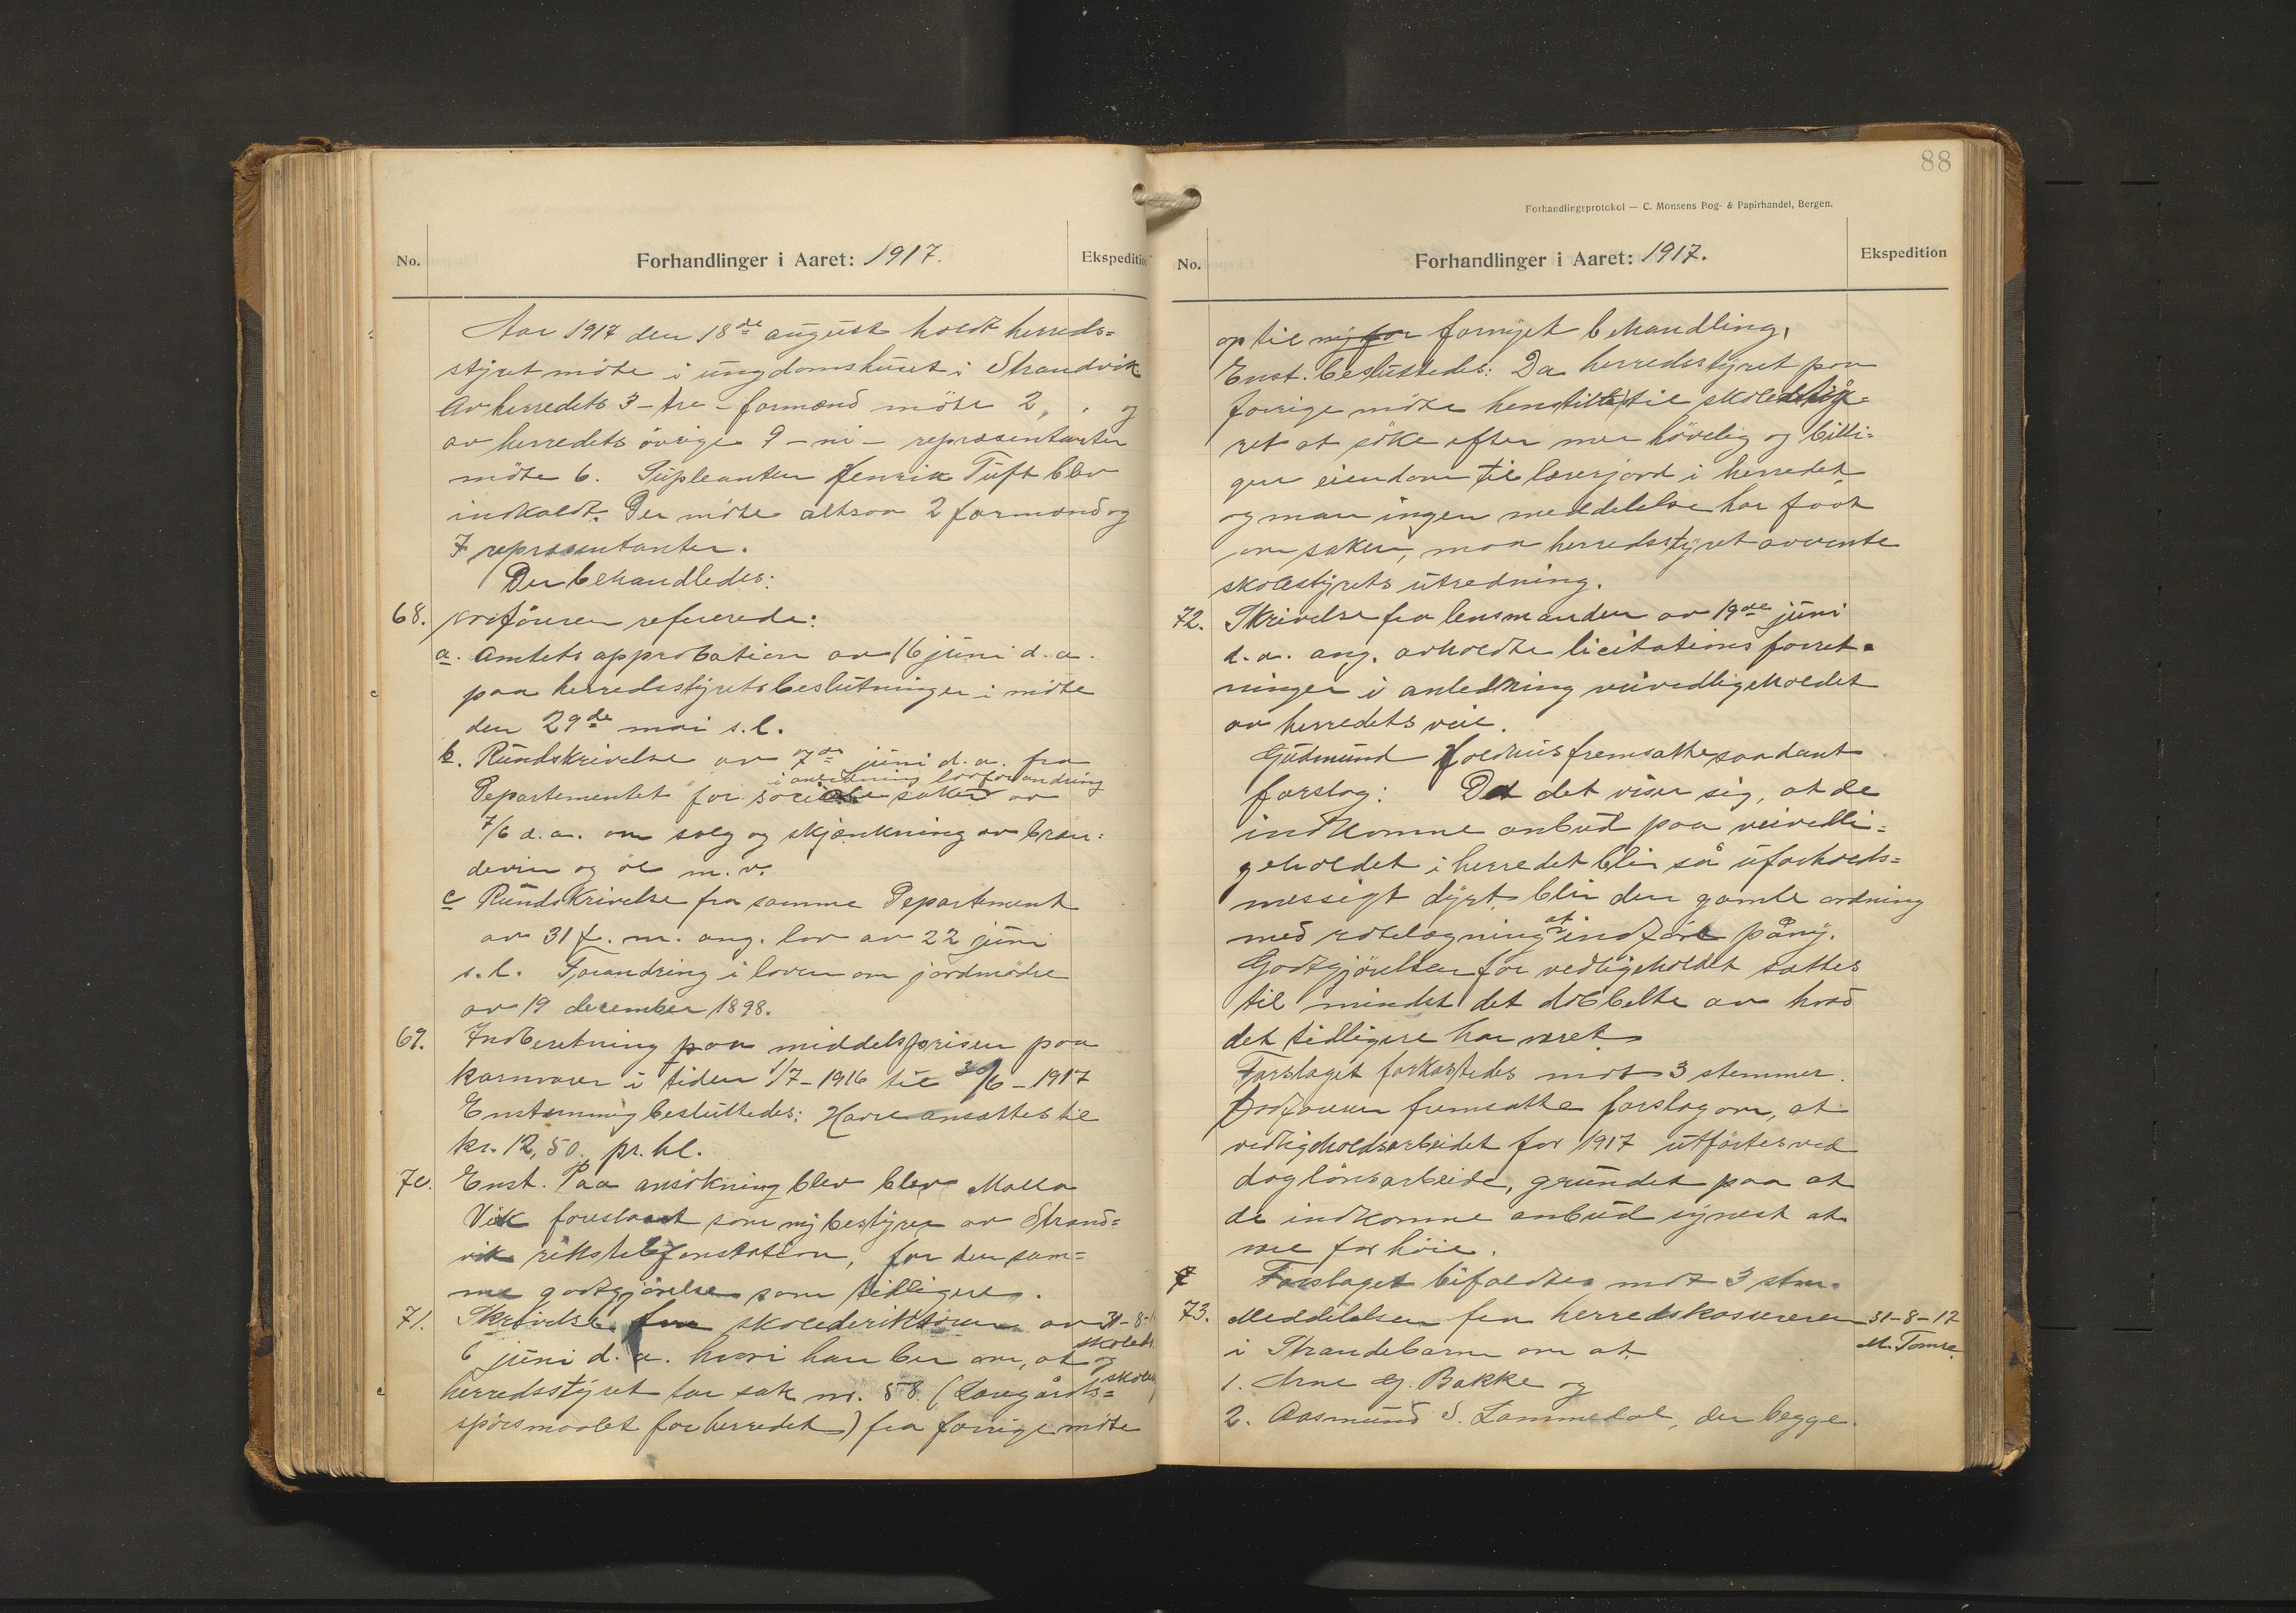 No.
Forhandlinger i Aaret: 1917.
Ekspeditio
Aar 1917 den 18de august holdt herreds=
styret möte i ungdomshuset i Strandvik
Av herredets 3-tre-formænd möte 2, og
av herredets övrige 9-ni- repræsentanter
möte 6. Supleanten Henrik Tuft blev
indkaldt. Der möte altsaa 2 formænd og
7 repræsentanter.
Der behandledes:
68. Ordföreren refererede:
a. Amtets approbation av 16 juni d.a.
paa herredsstyrets beslutninger i möte
den 29de mai s.l.
b. Rundskrivelse av 7de juni d.a. fra
i anledning lovforandring
Departementet for sociale saker av
7/6 d.a. om salg og skjænkning av bræn=
devin og öl m.v.
c Rundskrivelse fra samme Departement
av 31 f.m. ang. lov av 22 juni
s.l. Forandring i loven om jordmödre
av 19 december 1898.
69. Indberetning paa middelsprisen paa
kornvarer i tiden 1/7-1916 til 30/6-1917
Enstemmig besluttedes: Havre ansattes til
kr. 12,50 pr. hl.
70. Enst. Paa ansökning blev blev Malla
Vik foreslaat som ny bestyrer av Strand=
vik rikstelefonstation, for den sam=
me godtgjörelse som tidligere.
71. Skrivelse fra skoledirektören av
31-8-
skoledi
og
skole
6 juni d.a. hvori han ber om, at
herredsstyret tar sak nr. 58. (Læregårds=
spörsmaalet for herredet) fra forrige möte
88
Forhandlingsprotokol — C. Monsens Bog- & Papirhandel, Bergen.
No.
Forhandlinger i Aaret: 1917.
Ekspedition
op til ny for fornyet behandling.
Enst. besluttedes: Da herredsstyret paa
forrige möte henstillet til skolesty=
ret at söke efter mer hövelig og billi=
gere eiendom til lærerjord i herredet,
og man ingen meddelelse har faat
om saken, maa herredsstyret avvente
skolestyrets utredning.
72. Skrivelse fra lensmanden av 19de juni
d.a. ang. avholdte licitations forret=
ninger i anledning veivedligeholdet
av herredets veie.
Gudmund Holdhus fremsatte saadant
forslag: Da det viser sig, at de
indkomne anbud paa veivedli=
geholdet i herredet blir så uforholds=
messigt dyrt blir den gamle ordning
med rodelægning at indföre påny.
Godtgjörelsen for vedligeholdet sættes
til mindst det dobbelte av hvad
det tidligere har været.
Forslaget forkastedes mot 3 stemmer.
Ordföreren fremsatte forslag om, at
vedligeholdsarbeidet for 1917 utförtes ved
daglönsarbeide, grundet paa at
de indkomne anbud synest at
være for höie.
7 Forslaget bifaldtes mot 3 stm.
73. Meddelelsen fra herredskassereren
31-8-17
M. Tomre.
i Strandebarm om at
1. Arne G. Bakke og
2. Aasmund S. Lammedal, der begge